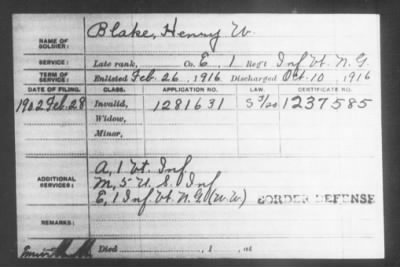 NAME OF SOLDIER: Blake, Henry W.
SERVICE: Late rank, Co. E, 1 Reg't Inf Vt. N.G.
TERM OF SERVICE: Enlisted Feb. 26, 1916 Discharged Oct. 10, 1916
DATE OF FILING. CLASS. APPLICATION NO. LAW. CERTIFICATE NO.
1902 Feb. 28 Invalid, 1281631 1237585
Widow,
Minor,
ADDITIONAL SERVICES: A, 1 Vt. Inf
M, 5 U.S. Inf
E, 1 Inf Vt. N.G. (W.W) BORDER DEFENSE
REMARKS:
Died , 1 , at